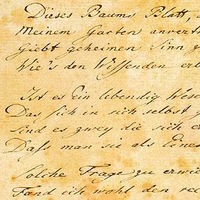 Dieses Baums Blatt, 
Meinem Garten anvertr
Giebt geheimen Sinn z
Wie's den Wissenden er
Ist es Ein lebendig Wese
Das sich in sich selbst g
Sind es zwey die sich e
Daß man sie als Eines
Solche Frage zu erwie
Fand ich wohl den rec